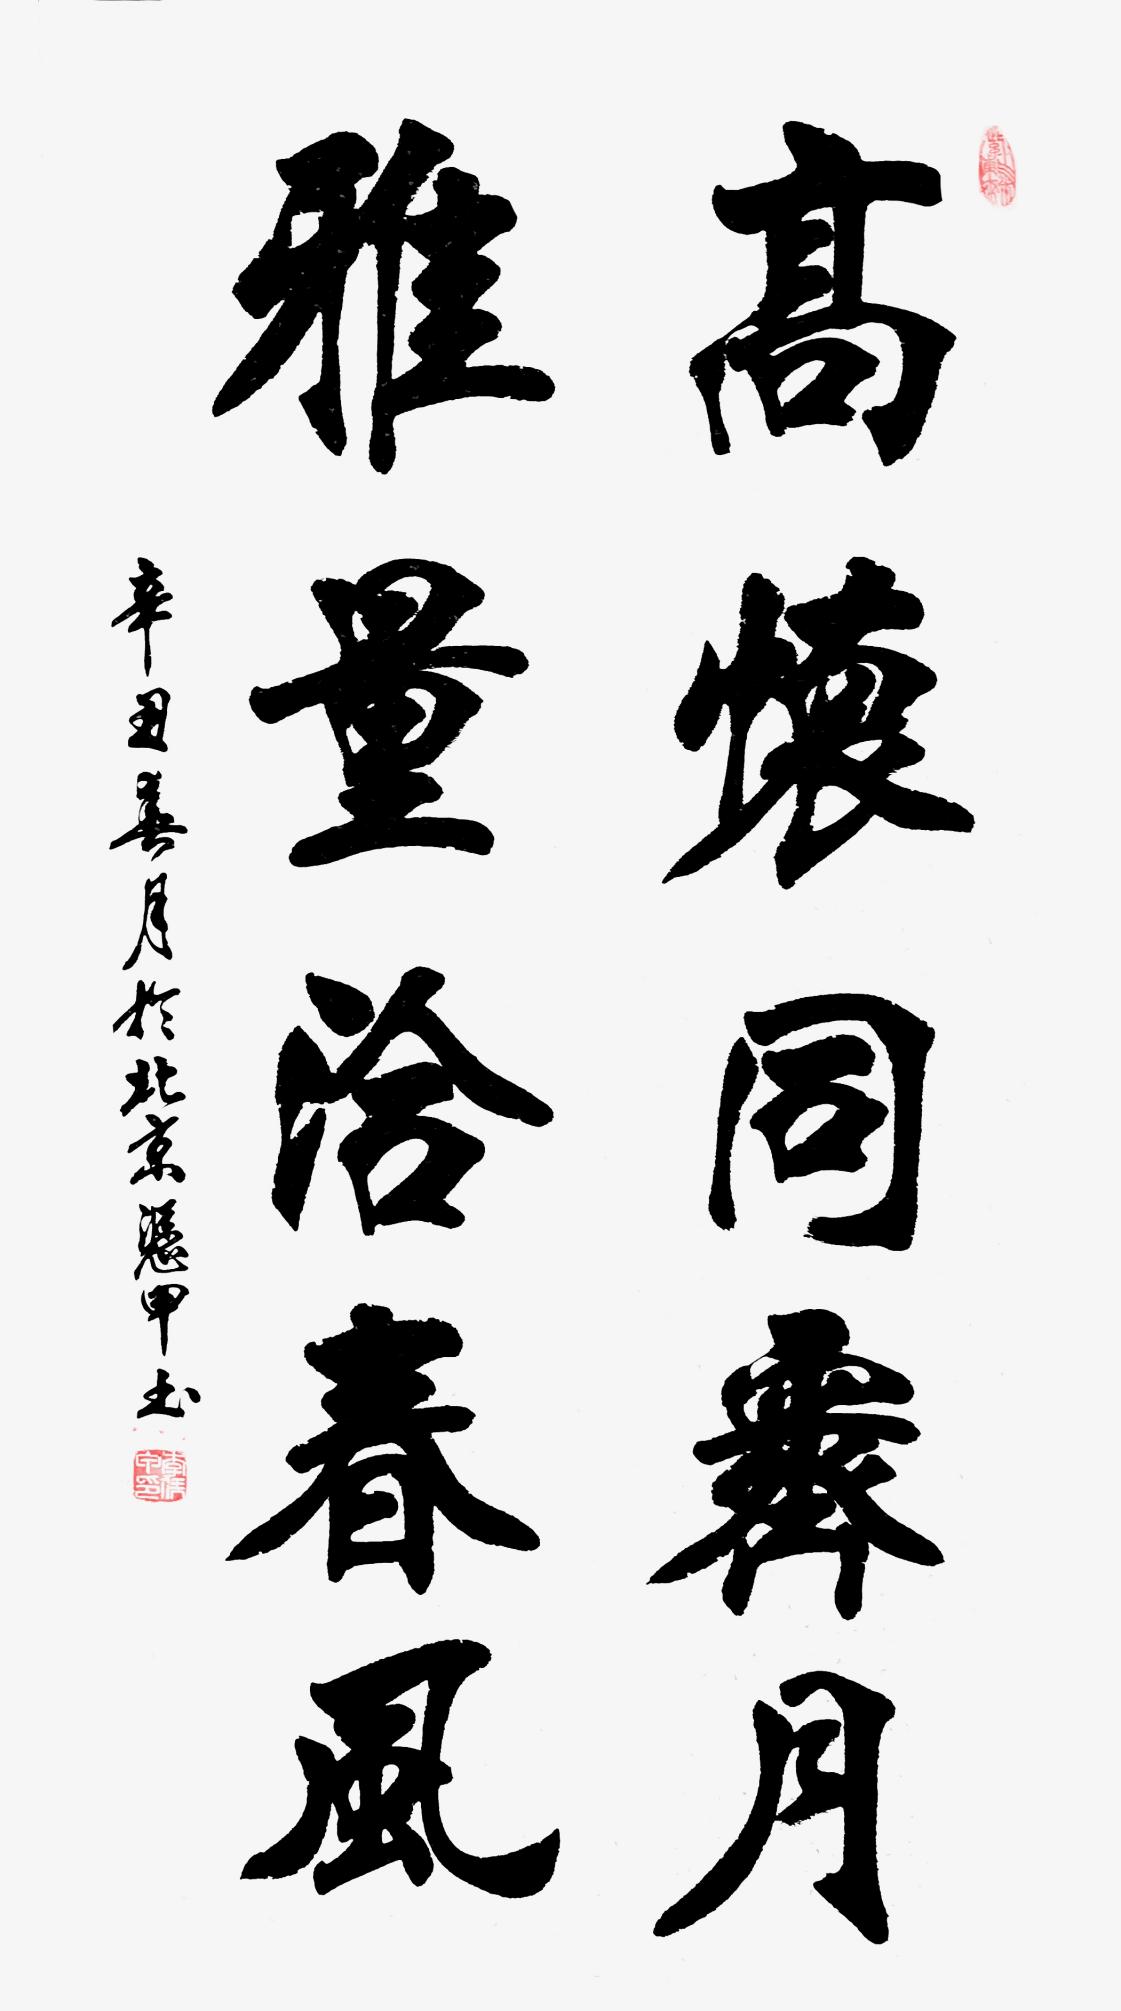 高懷同霽月
雅量洽春風
辛丑春月於北京憑甲书